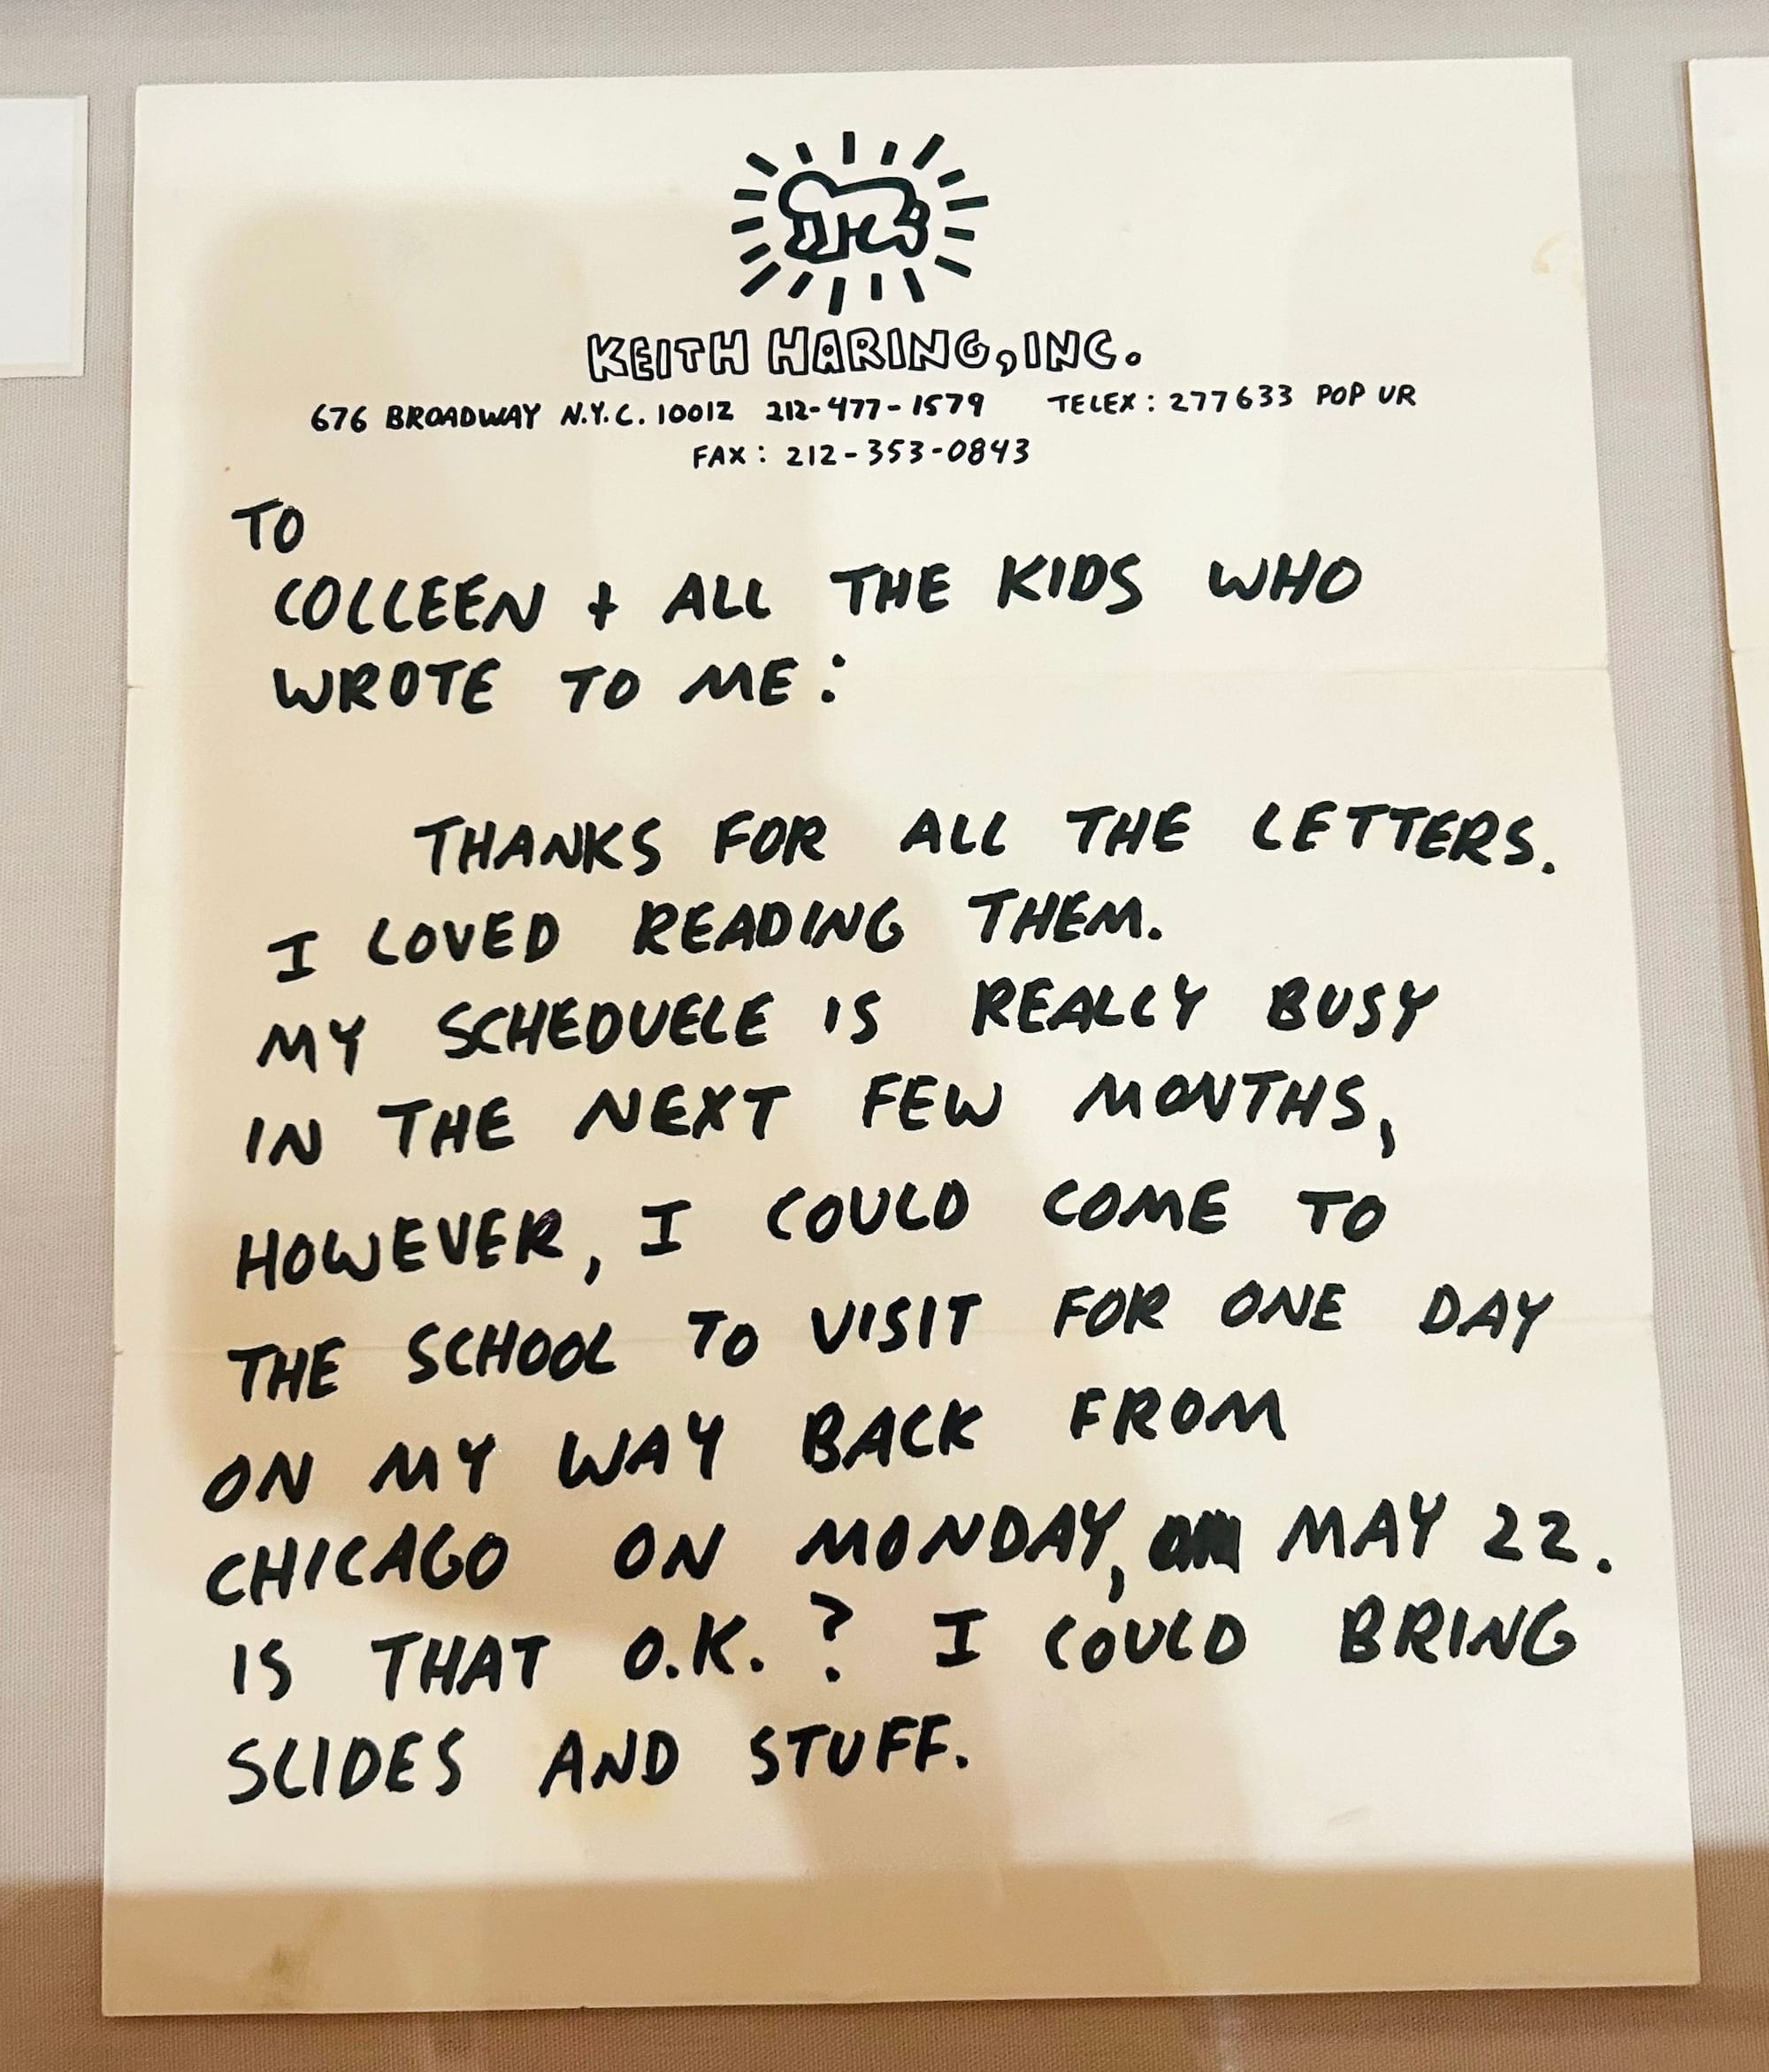 KEITH HARING, INC.
676 BROADWAY N.Y.C. 10012 212-477-1579 TELEX: 277633 POP UR
FAX: 212-353-0843
TO
COLLEEN + ALL THE KIDS WHO
WROTE TO ME:
THANKS FOR ALL THE LETTERS.
I LOVED READING THEM.
MY SCHEDUELE IS REALLY BUSY
IN THE NEXT FEW MONTHS,
HOWEVER, I COULD COME TO
THE SCHOOL TO VISIT FOR ONE DAY
ON MY WAY BACK FROM
CHICAGO ON MONDAY, MAY 22.
IS THAT O.K.? I COULD BRING
SLIDES AND STUFF.